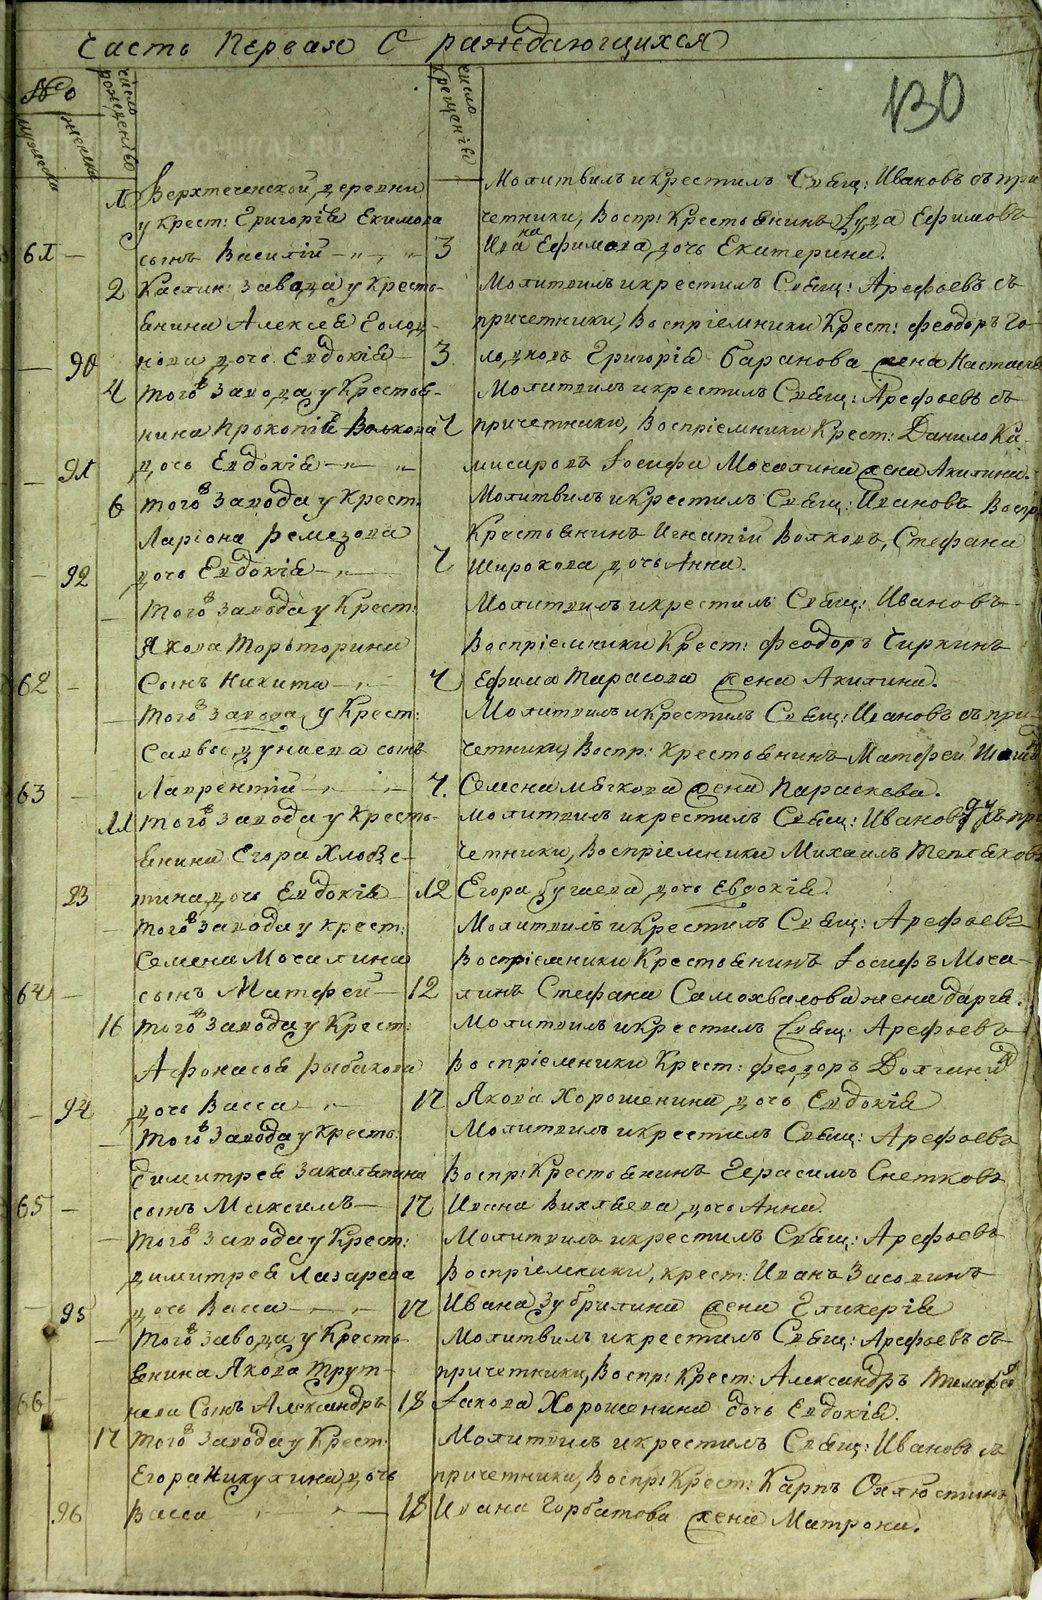 Часть Первая О раждающихся
130
№
мужеска
женска
число рожденія
число крещенія
1 Верхтеченской деревни
у крест: Григорія Екимова
61 — сынъ Василій 3
Молитвилъ и крестилъ Свящ: Ивановъ съ при
четники, Воспр: Крестьянинъ Ефимовъ
Ивана Ефимова дочь Екатерина.
2 Каслин: завода у Кресть-
янина Алексея Голод-
— 90 нова дочь Евдокія 3
Молитвилъ и крестилъ Свящ: Арефьевъ съ
причетники, Воспріемники Крест: Феодоръ Го-
Григорія Баранова жена Настасья
4 Того завода у Крестья-
нина Прокопія Волкова 7
— 91 дочь Евдокія
Молитвилъ и крестилъ Свящ: Арефьевъ съ
причетники, Воспріемники Крест: Данило Ка-
мисаровъ Іосифа Мочалина жена Акилина.
6 Того завода у Крест:
Ларіона Ремезова
— 92 дочь Евдокія 7
Молитвилъ и крестилъ Свящ: Ивановъ Воспр:
Крестьянинъ Игнатій Волковъ, Стефана
Широкова дочь Анна.
— Того завода у Крест:
Якова Торбторина
62 — Сынъ Никита 7
Молитвилъ и крестилъ Свящ: Ивановъ
Воспріемники Крест: Феодоръ Чиркинъ
Ефима Тарасова жена Акилина.
— Того завода, у Крест:
Саввы Дунаева сынъ
63 — Лаврентій 7.
Молитвилъ и крестилъ Свящ: Ивановъ съ при-
четники, Воспр: Крестьянинъ Матфей
Семена Мягкова жена Параскева.
11 Того завода у Кресть-
янина Егора Хлобыс-
93 тина дочь Евдокія 12
Молитвилъ и крестилъ Свящ: Ивановъ съ при
четники, Воспріемники Михаилъ Тепляковъ
Егора Дугаева дочь Евдокія.
— Того завода у крест:
Семена Мочалина
64 — сынъ Матфей 12
Молитвилъ и крестилъ Свящ: Арефьевъ
Воспріемники Крестьянинъ Іосифъ Моча-
линъ Стефана Самохвалова жена Дарія.
16 Того завода у Крест:
Афонасья Рыбакова
— 94 дочь Васса 17
Молитвилъ и крестилъ Свящ: Арефьевъ
Воспріемники Крест: Феодоръ Долгинъ
Якова Хорошенина дочь Евдокія
— Того завода у Кресть:
Димитрея Закалякина
65 — сынъ Максимъ 17
Молитвилъ и крестилъ Свящ: Арефьевъ
Воспр: Крестьянинъ Герасимъ Снетковъ
Ивана Вихляева дочь Анна.
— Того завода у Крест:
Димитрея Лазарева
— 95 дочь Васса 17
Молитвилъ и крестилъ Свящ: Арефьевъ
Воспріемники, крест: Иванъ Засовинъ
Ивана Зубрилина жена Гликерія
— Того завода у Кресть-
янина Якова Трут-
66 нева Сынъ Александръ 18
Молитвилъ и крестилъ Свящ: Арефьевъ съ
причетники, Воспр: Крест: Александръ Тимофе
Іакова Хорошенина дочь Евдокія.
17 Того завода у Крест:
Егора Никулина дочь
96 Васса 18
Молитвилъ и крестилъ Свящ: Ивановъ съ
причетники, Воспр: Крест: Карпъ Охлюстинъ
Ивана Горбатова жена Матрона.